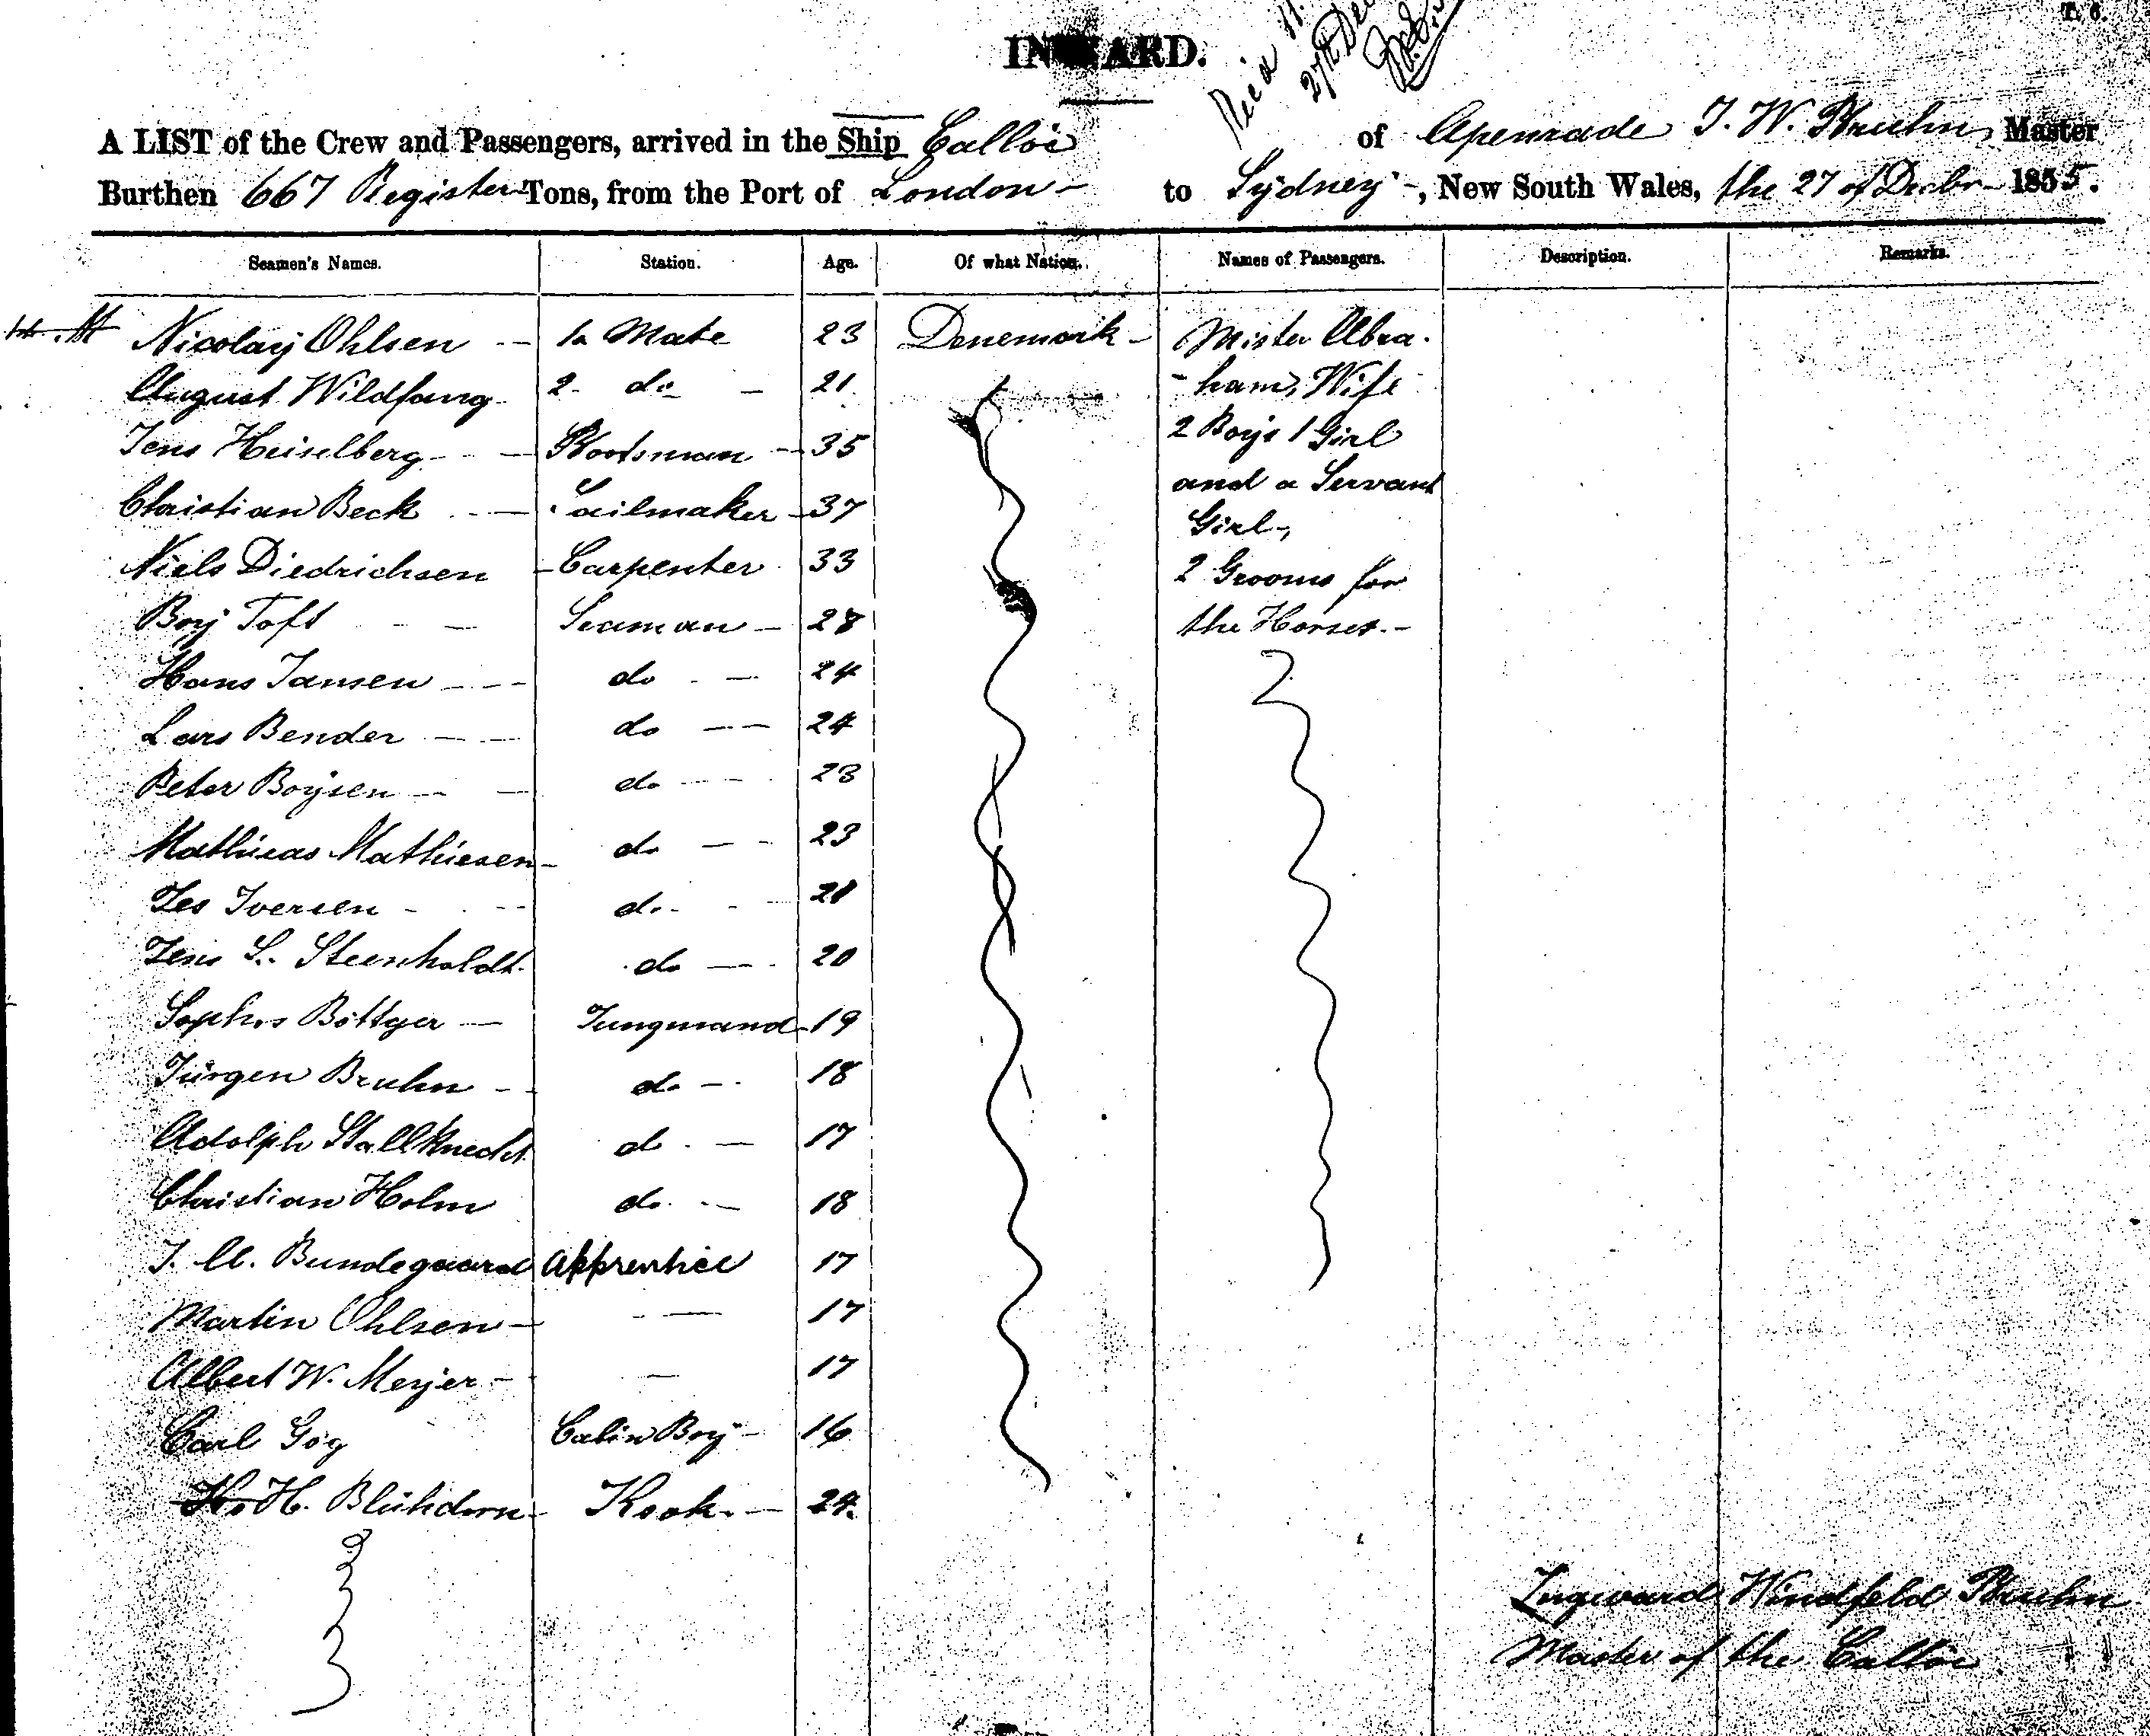 T. 6.
INWARD.
Recd
27th Dec
A LIST of the Crew and Passengers, arrived in the Ship Calloe of Apenrade J. W. Bruhn, Master
Burthen 667 Register Tons, from the Port of London - to Sydney -, New South Wales, the 27 of Decbr - 1855.
Seamen's Names. Station. Age. Of what Nation. Names of Passengers. Description. Remarks.
Nicolaij Ohlsen 1 Mate 23 Denemark - Mister Abra-
August Wildfang 2 do - 21 - ham, Wife
Jens Heiselberg Bootsman 35 2 Boys 1 Girl
Christian Beck Sailmaker 37 and a Servant
Girl -,
Niels Diedrichsen Carpenter 33 2 Grooms for
Boij Toft Seaman 28 the Horses. -
Hans Jansen do 24
Lars Bender do 24
Peter Boijsen do 23
Mathias Mathiesen do 23
Jes Iversen do 21
Jens S. Steenholdt do 20
Sophus Böttger Jungmand 19
Jürgen Bruhn do 18
Adolph Stallknecht do 17
Christian Holm do 18
J. A. Bundegaard Apprentice 17
Martin Ohlsen - 17
Albert W. Meyer - 17
Carl Goy Cabin Boy 16
H. Blühdorn Kook. 24.
Ingward Windfeld Bruhn
Master of the Calloe